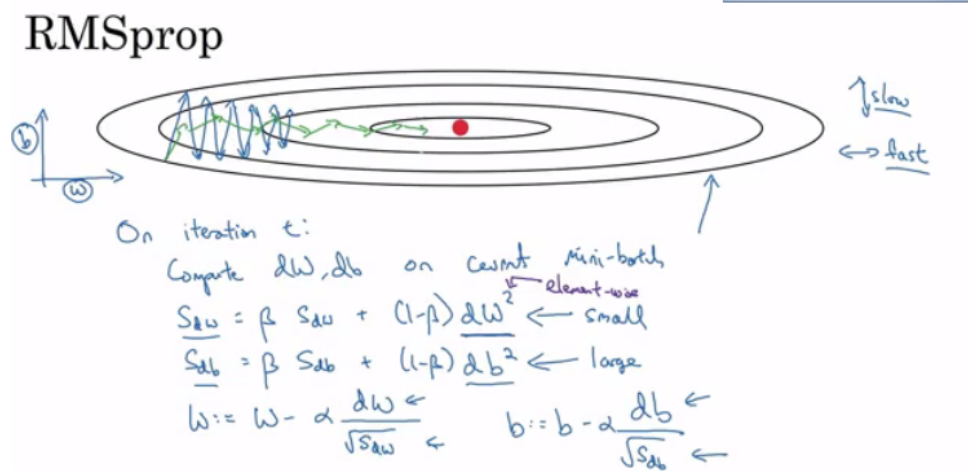 RMSprop
↕ slow
↔ fast
b
w
On iteration t:
Compute dW, db on current mini-batch
element-wise
S_dw = β S_dw + (1-β) dW² ← small
S_db = β S_db + (1-β) db² ← large
W := W - α dW/√S_dw ← b := b - α db/√S_db ←